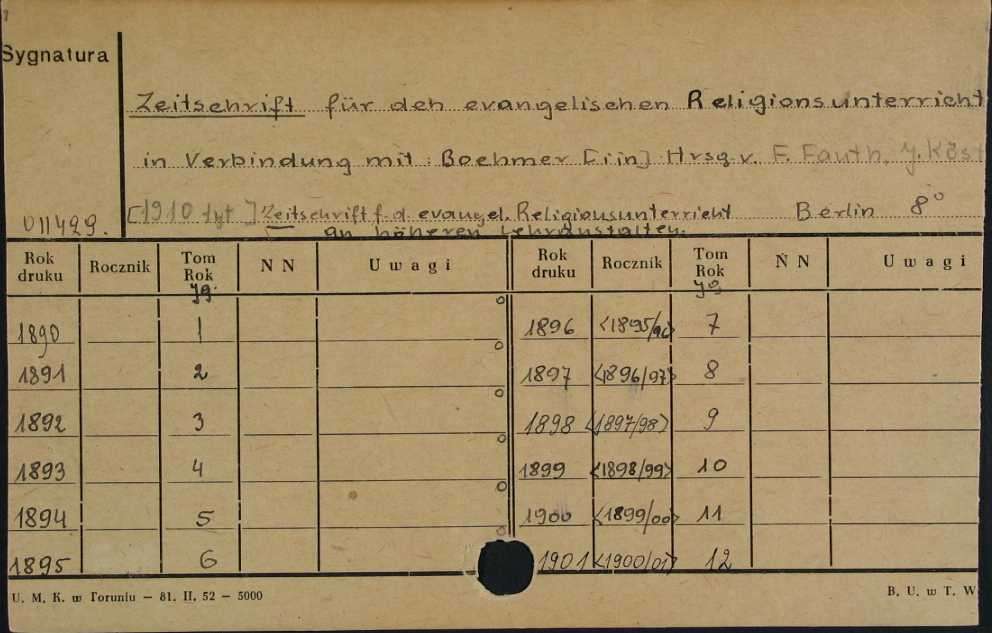 Sygnatura
Zeitschrift für den evangelischen Religionsunterricht
in Verbindung mit: Boehmer [iin] Hrsg. v. F. Fauth, J. Köst
[1910 tyt] Zeitschrift f. d. evangel. Religionsunterricht Berlin 8°
011429. an höheren Lehranstalten.
Rok druku Rocznik Tom Rok NN Uwagi Rok druku Rocznik Tom Rok NN Uwagi
Jg. Jg
1890 1 1896 <1895/96> 7
1891 2 1897 <1896/97> 8
1892 3 1898 <1897/98> 9
1893 4 1899 <1898/99> 10
1894 5 1900 <1899/00> 11
1895 6 1901 <1900/01> 12
U. M. K. w Toruniu — 81. II. 52 — 5000 B. U. w T. W